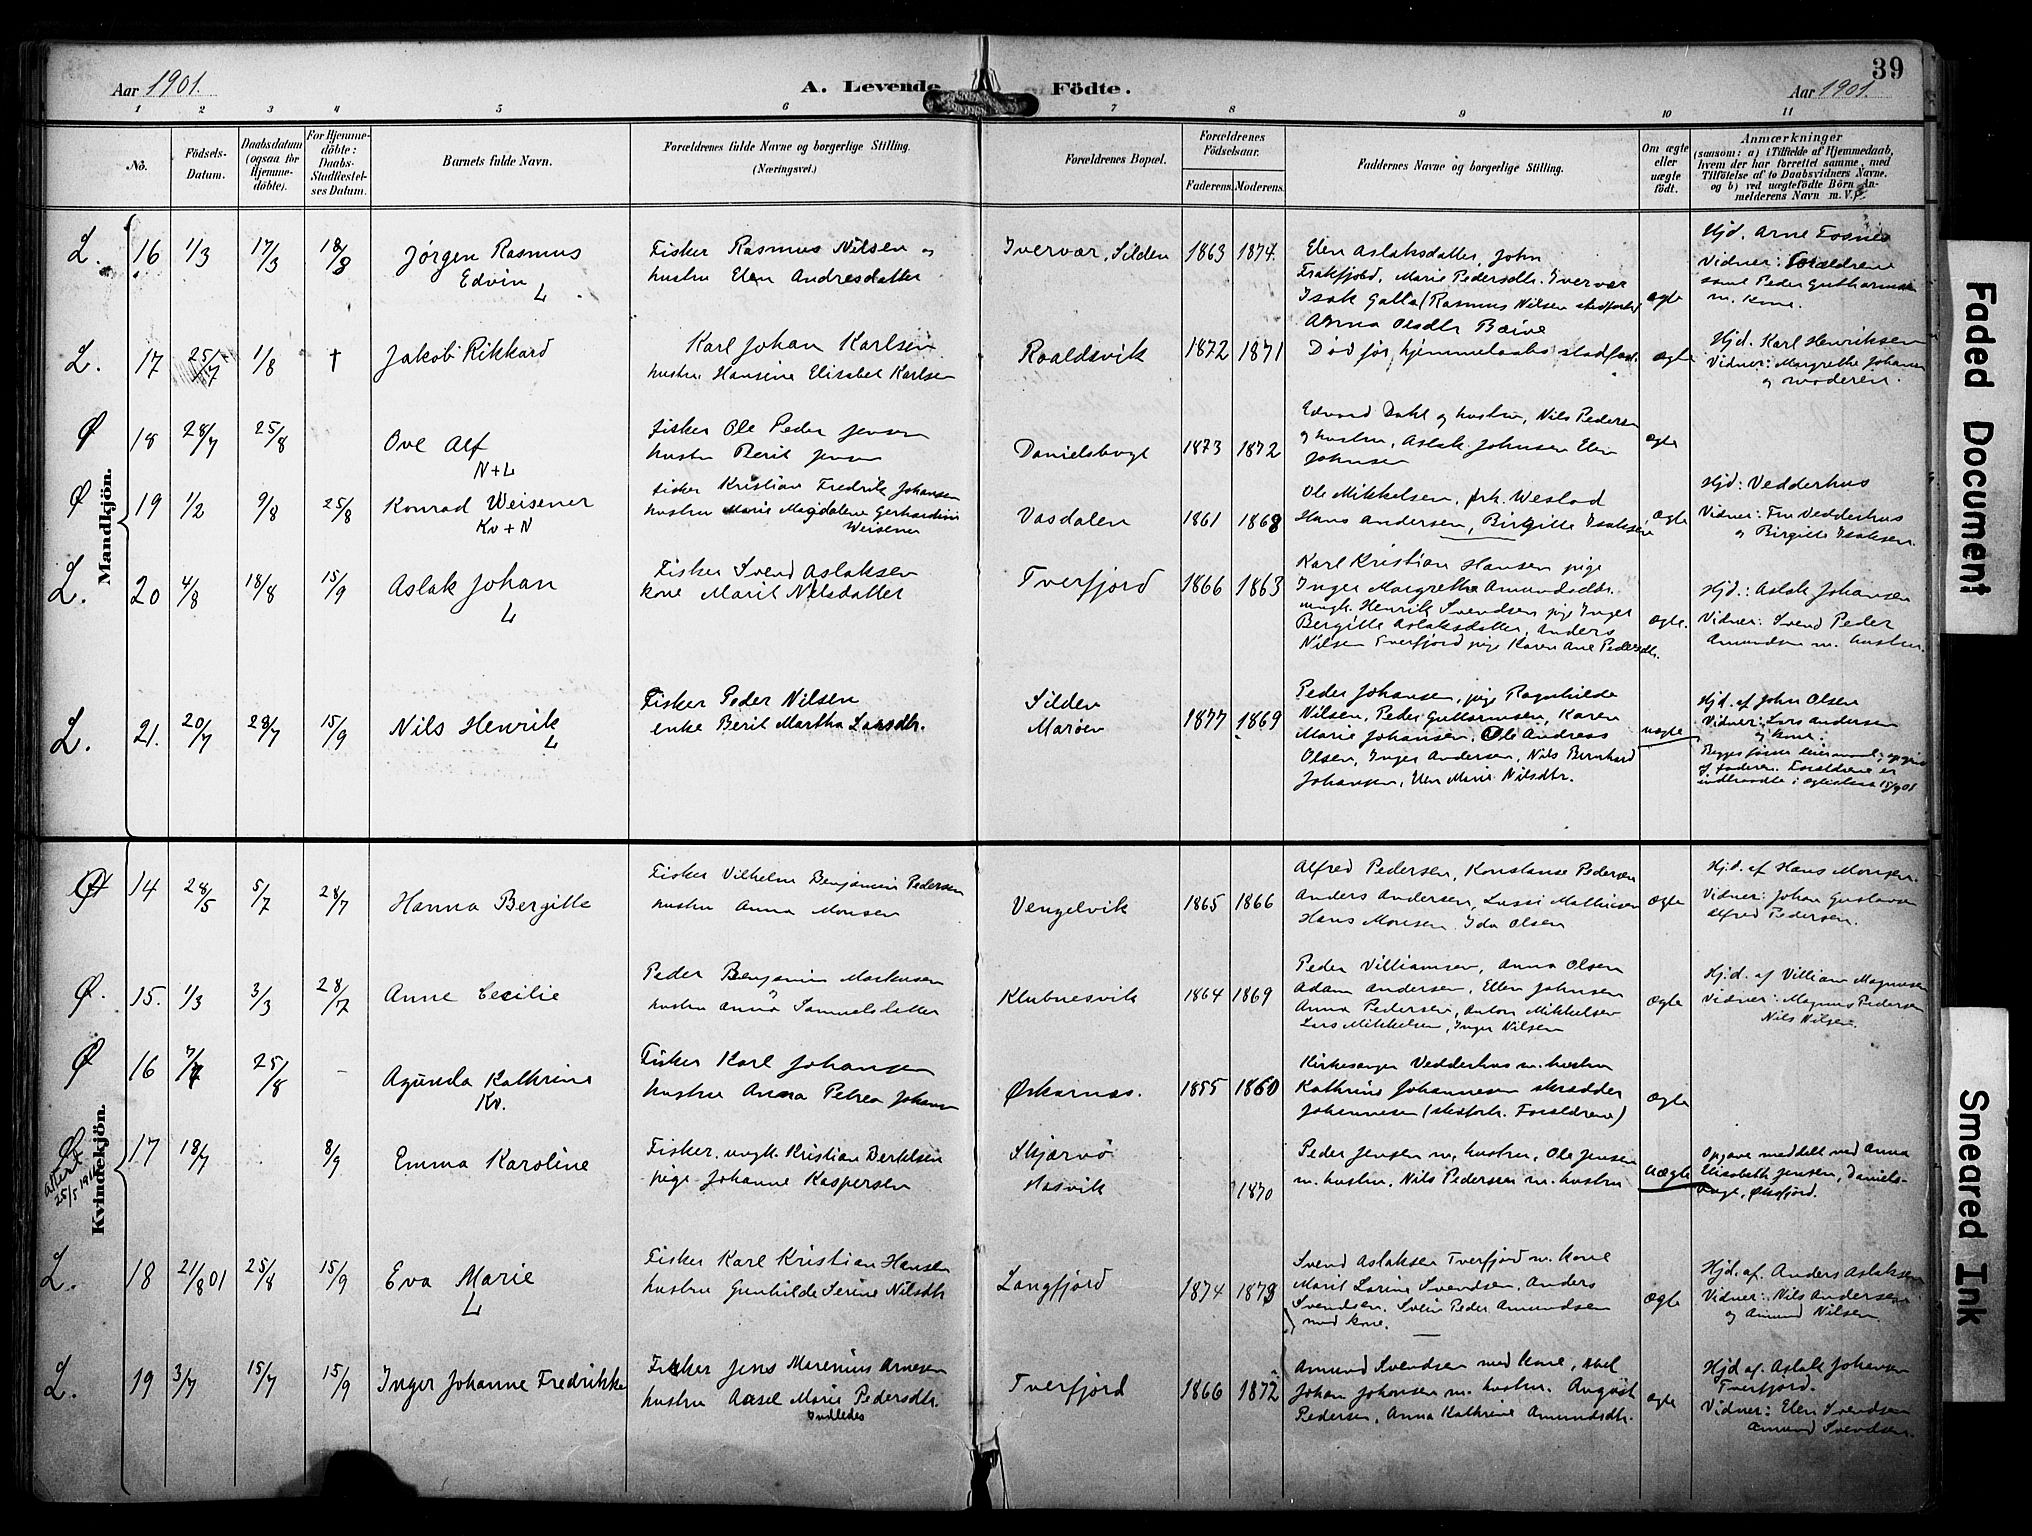 39
Aar 1901.
A. Levende Födte.
Aar 1901.
1 2 3 4 5 6 7 8 9 10 11
No.
Födsels-
Datum.
Daabsdatum
(ogsaa for
Hjemme-
döbte).
For Hjemme-
döbte:
Daabs-
Stadfæstel-
ses Datum.
Barnets fulde Navn.
Forældrenes fulde Navne og borgerlige Stilling.
(Næringsvei.)
Forældrenes Bopæl.
Forældrenes
Födselsaar.
Faderens. Moderens.
Faddernes Navne og borgerlige Stilling.
Om ægte
eller
uægte
födt.
Anmærkninger
(saasom: a) i Tilfælde af Hjemmedaab,
hvem der har forrettet samme, med
Tilföielse af to Daabsvidners Navne.
og b) ved uægtefödte Börn An-
melderens Navn m. V.
Mandkjön.
L. 16 1/3 17/3 18/8
Jørgen Rasmus
Edvin
L
Fisker Rasmus Nilsen og
hustru Elen Andresdatter
Ivervær, Silden 1863 1874.
Elen Aslaksdatter, John
Frakfjord, Marie Pedersdtr. Ivervær
Isak Galla (Rasmus Nilsen stedfortr.)
Anna Olsdtr Bæive
ægte
Hjd. Arne Fosnes
Vidner: Forældrene
samt Peder
m. kone.
L. 17 25/7 1/8 †
Jakob Rikkard
Karl Johan Karlsen
hustru Hansine Elisabet Karlsen
Roaldsvik 1872 1871
Død før hjemmedaabs stadfæst.
ægte
Hjd. Karl Henriksen
Vidner: Margrethe Johansen
og moderen.
Ø 18 28/7 25/8
Ove Alf
N+L
fisker Ole Peder Jensen
hustru Berit Jensen
Danielsbugt 1873 1872
Edvard Dahl og hustru, Nils Pedersen
og hustru, Aslak Johnsen Elen
Johnsen
ægte
Ø 19 1/2 9/8 25/8
Konrad Weisener
Kv+N
fisker Kristian Fredrik Johansen
hustru Marie Magdalene Gerhardine
Weisener
Vasdalen 1861 1868
Ole Mikkelsen, frk. Westad
Hans Andersen, Birgitte Isaksen
ægte
Hjd: Vedderhus
Vidner: Fru Vedderhus
og Birgitte Isaksen.
L. 20 4/8 18/8 15/9
Aslak Johan
L
Fisker Svend Aslaksen
kone Marit Nilsdatter
Tverfjord 1866 1863
Karl Kristian Hansen pige
Inger Margrethe Amundsdtr.
ungk. Henrik Svendsen pige Inger
Bergitte Aslaksdatter, Anders
Nilsen Tverfjord pige Karen Ane Pedersdtr.
ægte.
Hjd.: Aslak Johansen
Vidner: Svend Peder
Amundsen m. hustru.
L. 21. 20/7 28/7 15/9
Nils Henrik
L
Fisker Peder Nilsen
enke Berit Martha Larsdtr.
Silden
Marøen
1877 1869
Peder Johansen, pige Ragnhilde
Nilsen, Peder Guttormsen, Karen
Marie Johansen, Ole Andreas
Olsen, Inger Andersen, Nils Bernhard
Johansen, Elen Marie Nilsdtr.
uægte
Hjd. af John Olsen
Vidner: Lars Andersen
og kone.
Begges første leiermaal; opgivet
af faderen. Forældrene er
indtraadte i ægteskab 15/9 01
Kvindekjön.
Ø 14 28/5 5/7 28/7
Hanna Bergitte
Fisker Vilhelm Benjamin Pedersen
hustru Anna Monsen
Vengelvik 1865 1866
Alfred Pedersen, Konstanse Pedersen
Anders Andersen, Lussi Mathisen
Hans Monsen Ida Olsen
ægte
Hj.d. af Hans Monsen.
Vidner: Johan Gustavsen
Alfred Pedersen.
Ø. 15. 1/3 3/3 28/7
Anne Cecilie
Peder Benjamin Markusen
hustru Anna Samuelsdatter
Klubnesvik 1864 1869
Peder Villiamsen, Anna Olsen
Adam Andersen, Ellen Johnsen
Anna Pedersen, Anton Mikkelsen
Lars Mikkelsen, Inger Nilsen
ægte
Hj.d. af Villiam Magnusen
Vidner: Magnus Pedersen
Nils Nilsen.
Ø 16 7/7 25/8 -
Agunda Kathrine
Kv.
Fisker Karl Johansen
hustru Anna Petrea Johansen
Øskarnæs. 1855 1860
Kirkesanger Vedderhus m. hustru
Kathrine Johannesen skrædder
Johannesen (stedfortr. Forældrene)
ægte
Ø 17 18/7 8/9
attest
25/5 19
Emma Karoline
Fisker, ungk. Kristian Bertelsen
pige Johanne Kaspersen
Skjærvø
Hasvik
1870
Peder Jensen m. hustru, Ole Jensen
m. hustru, Nils Pedersen m. hustru
uægte
Opgave meddelt ved Anna
Elisabeth Jensen, Daniels-
bugt, Øksfjord.
L. 18 21/8 01 25/8 15/9
Eva Marie
L
Fisker Karl Kristian Hansen
hustru Gunhilde Serine Nilsdtr
Langfjord 1874 1873
Svend Aslaksen Tverfjord m. kone
Marit Larine Svendsen, Anders
Svendsen, Svein Peder Amundsen
med kone.
ægte
Hjd. af. Anders Aslaksen
Vidner: Nils Andersen
og Amund Nilsen.
L. 19 3/7 15/7 15/9
Inger Johanne Fredrikke
Fisker Jens Marenius Arnesen
hustru Aasel Marie Pedersdtr.
Indledes
Tverfjord 1866 1872
Amund Svendsen med kone,
Johan Johansen m. hustru. August
Pedersen, Anna Kathrine Amundsdtr.
ægte
Hjd af. Aslak Johansen
Tverfjord.
Vidner: Elen Svendsen
Amund Svendsen.
Faded Document
Smeared Ink